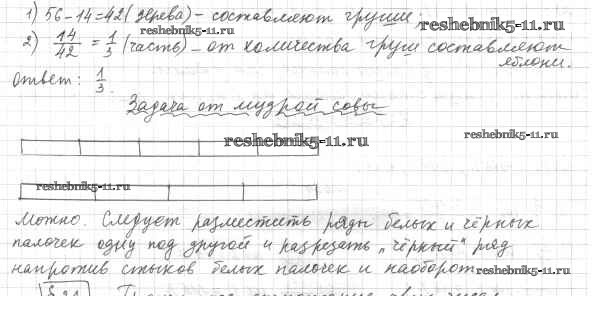 1) 56-14=42 (дерева) - составляют груши, reshebnik5-11.ru
reshebnik5-11.ru
2) 14/42 = 1/3 (часть) - от количества груш составляют
яблони.
ответ: 1/3.
Задача от мудрой совы
reshebnik5-11.ru reshebnik5-11.ru
reshebnik5-11.ru
Можно. Следует разместить ряды белых и чёрных
палочек одну под другой и разрезать "чёрный" ряд
напротив стыков белых палочек и наоборот. reshebnik5-11.ru